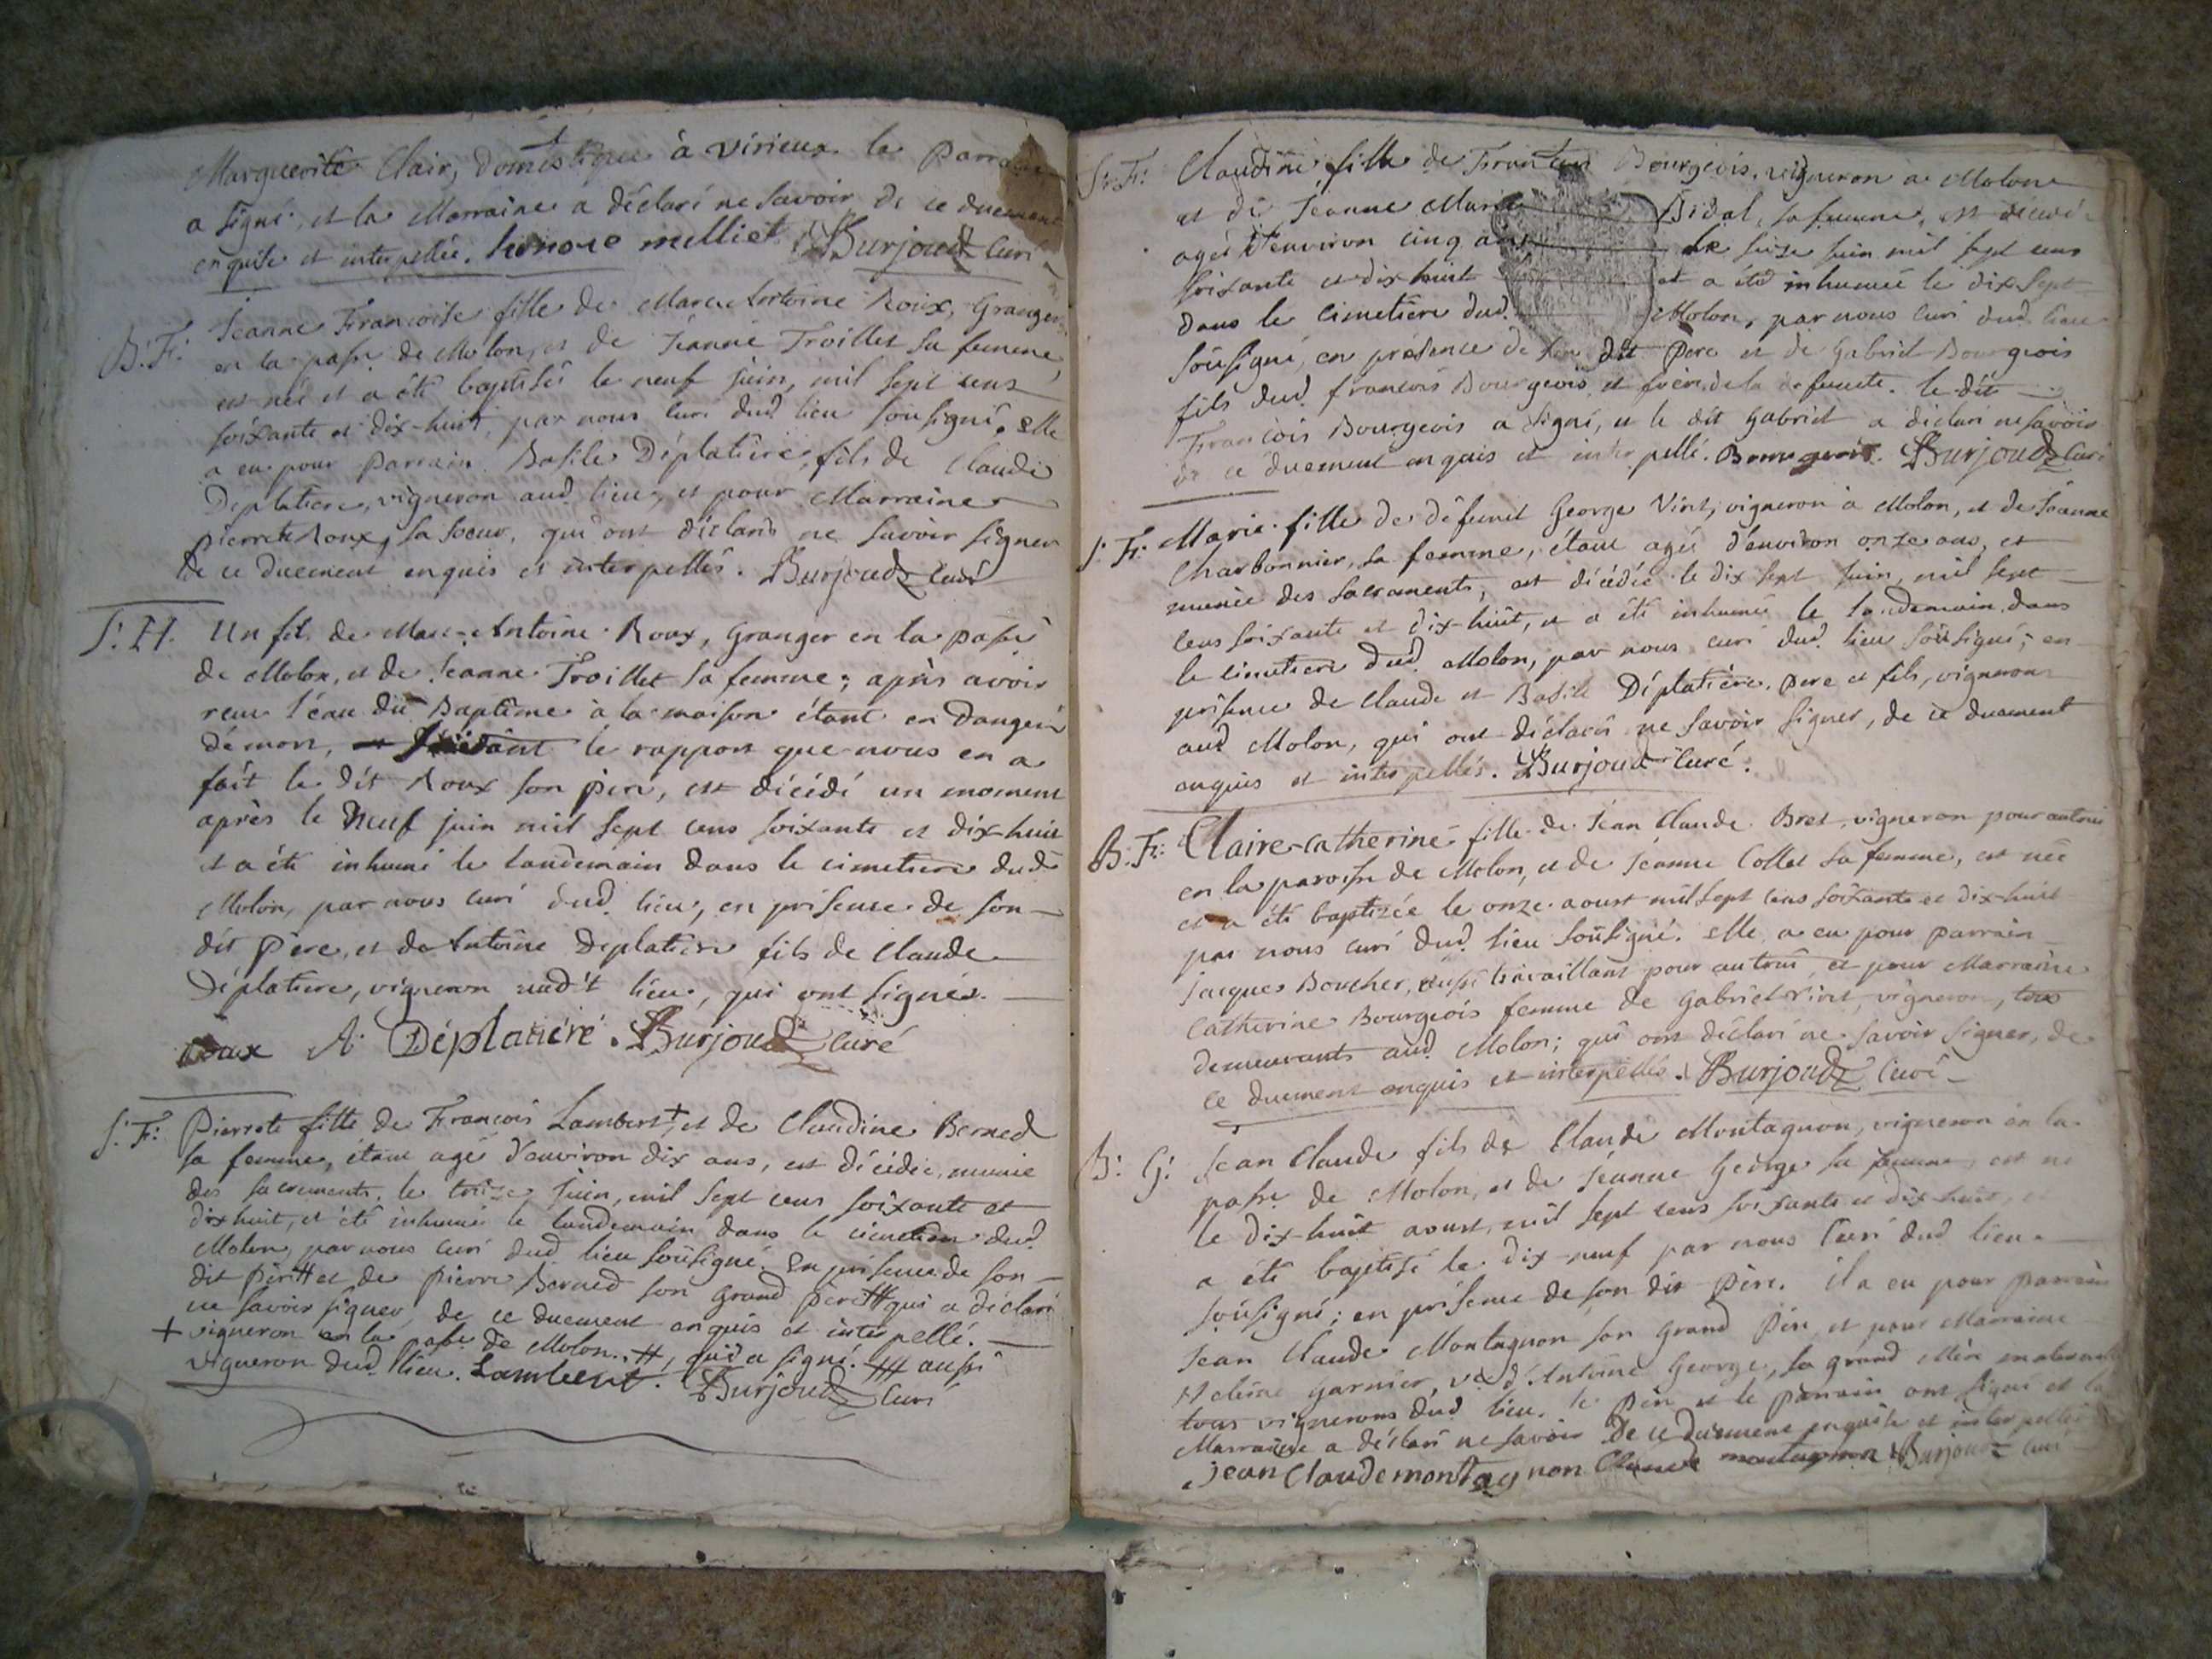 Marguerite Clair, Domestique à virieux. le Parrain
a signé, et la Marraine a déclaré ne savoir de ce duement
enquise et interpellée. honore melliet. Burjoud Curé
B: F: Jeanne Francoise fille de Marc Antoine Roux, Granger
en la passe de Molon, et de Jeanne Troillet sa femme,
est née et a été baptisée le neuf juin, mil sept cens
soixante et dix-huit, par nous curé dud. lieu sousigné. elle
a eu pour parrain Basile Déplatiere, fils de Claude
Deplatiere, vigneron aud. lieu, et pour Marraine
pierrete Roux, sa soeur, qui ont déclaré ne savoir signer
de ce duement enquis et interpellés. Burjoud Curé
S: H. Un fils de Marc-Antoine Roux, Granger en la passe
de Molon, et de Jeanne Troillet sa femme; après avoir
reçu l'éau du Baptême à la maison étant en danger
de mort, suivant le rapport que nous en a
fait le dit Roux son père, est décédé un moment
après le neuf juin mil sept cens soixante et dix-huit
et a été inhumé le landemain dans le cimetiere dud
Molon, par nous curé dud. lieu, en présence de son
dit Père, et de Antoine Deplatiere fils de Claude
Déplatiere, vigneron audit lieu, qui ont signés.
Roux A. Déplatiére. Burjoud curé
S: F: Pierrete fille de François Lambert + et de Claudine Berned
sa femme, étant agé d'environ dix ans, est décédée, munie
des sacrements, le treize juin, mil sept cens soixante et
dix huit, et été inhumée le landemain dans le cimetiere dud.
Molon, par nous curé dud. lieu sousigné. En présence de son
dit père # et de pierre Berned son grand pere ## qui a déclaré
ne savoir signer, de ce duement enquis et interpellé.
+ vigneron en la passe de Molon. #, qui a signé. ## aussi
vigneron dud. lieu. Lambert. Burjoud Curé
S: F: Claudine fille de François Bourgeois, vigneron a Molon
et de Jeanne Marie Bidal, sa femme, est décédée
agée d'environ cinq ans le seize juin mil sept cens
soixante et dix-huit et a été inhumée le dix-sept
dans le cimetiere dud. Molon, par nous curé dud. lieu
sousigné, en présence de son dit Pere et de Gabriel Bourgeois
fils dud. francois Bourgeois et frère de la defunte. le dit
François Bourgeois a signé, et le dit Gabriel a déclaré ne savoir
de ce duement enquis et interpellé. Bourgeois. Burjoud Curé
S: F: Marie fille de défunct George Vint, vigneron à Molon, et de Jeanne
Charbonnier, sa femme, étant agée d'environ onze ans, et
munie des sacrements, est décédée le dix sept juin, mil sept
cens soixante et dix-huit, et a été inhumée le landemain dans
le cimetiere dud. Molon, par nous curé dud. lieu sousigné; en
présence de Claude et Basile Déplatiére, pere et fils, vignerons
aud. Molon, qui ont déclaré ne savoir signer, de ce duement
enquis et interpellés. Burjoud Curé.
B. F: Claire-Catherine fille de Jean Claude Bret, vigneron pour autrui
en la paroisse de Molon, et de Jeanne Collet sa femme, est née
et a été baptizée le onze aoust mil sept cens soixante et dix-huit
par nous curé dud. lieu sousigné. elle a eu pour parrain
Jacques Boucher, aussi travaillant pour autrui, et pour Marraine
Catherine Bourgeois femme de Gabriel Vint, vigneron, tous
demeurants aud. Molon; qui ont déclaré ne savoir signer, de
ce duement enquis et interpellés. Burjoud Curé
B: G: Jean Claude fils de Claude Montagnon, vigneron en la
passe de Molon, et de Jeanne George sa femme, est né
le dix-huit aoust, mil sept cens soixante et dix-huit, et
a été baptisé le dix-neuf par nous Curé dud lieu
sousigné; en présence de son dit Père. il a eu pour parrain
Jean Claude Montagnon son grand Père, et pour Marraine
garnier, ve d'Antoine George, sa grand Mère maternelle
tous vignerons dud. lieu. le Père et le parrain ont signé et la
Marraine a déclaré ne savoir De ce duement enquise et interpellée
jean Claude montagnon Claude montagnon Burjoud Curé